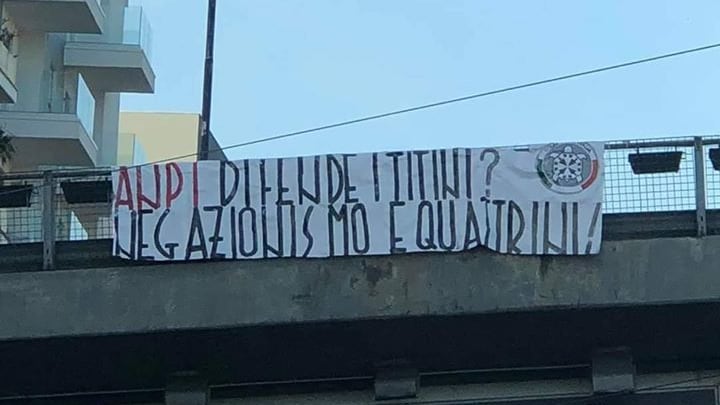 ANPI DIFENDE I TITINI?
NEGAZIONISMO E QUATTRINI!